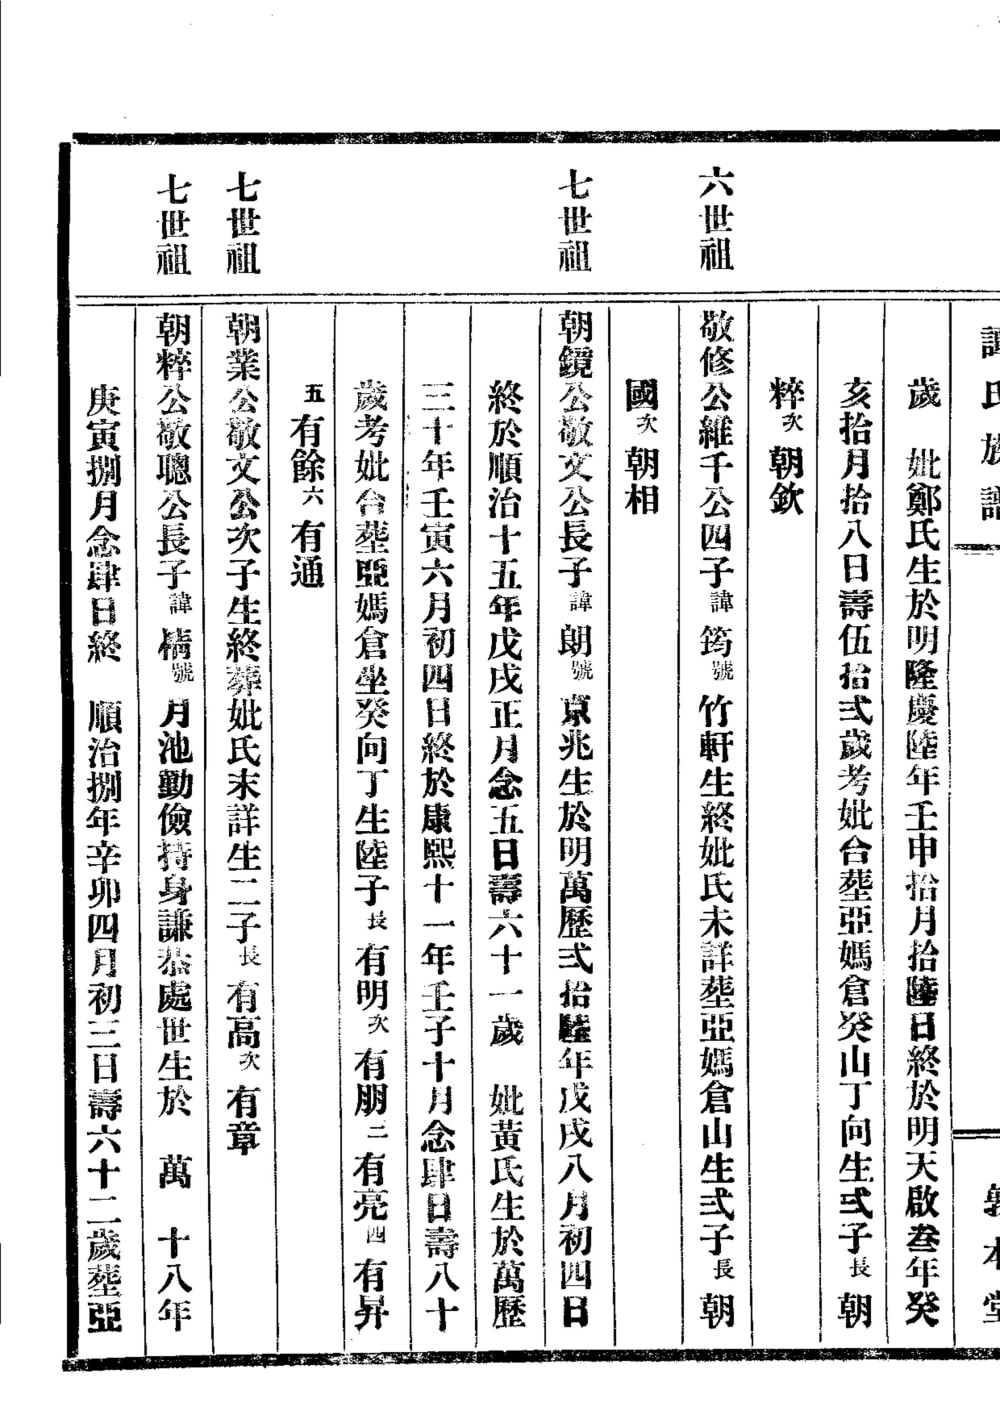 譚氏族譜
敦本堂
歲　妣鄭氏生於明隆慶陸年壬申拾月拾陸日終於明天啟叁年癸
亥拾月拾八日壽伍拾弍歲考妣合塟亞媽倉癸山丁向生弍子長朝
粹次朝欽
六世祖
敬修公維千公四子諱筠號竹軒生終妣氏未詳塟亞媽倉山生弍子長朝
國次朝相
七世祖
朝鏡公敬文公長子諱朗號京兆生於明萬歷弍拾陸年戊戌八月初四日
終於順治十五年戊戌正月念五日壽六十一歲　妣黃氏生於萬歷
三十年壬寅六月初四日終於康熙十一年壬子十月念肆日壽八十
歲考妣合塟亞媽倉坐癸向丁生陸子長有明次有朋三有亮四有昇
五有餘六有通
七世祖
朝業公敬文公次子生終葬妣氏末詳生二子長有高次有章
七世祖
朝粹公敬聰公長子諱楕號月池勤儉持身謙恭處世生於　萬　十八年
庚寅捌月念肆日終　順治捌年辛卯四月初三日壽六十二歲塟亞